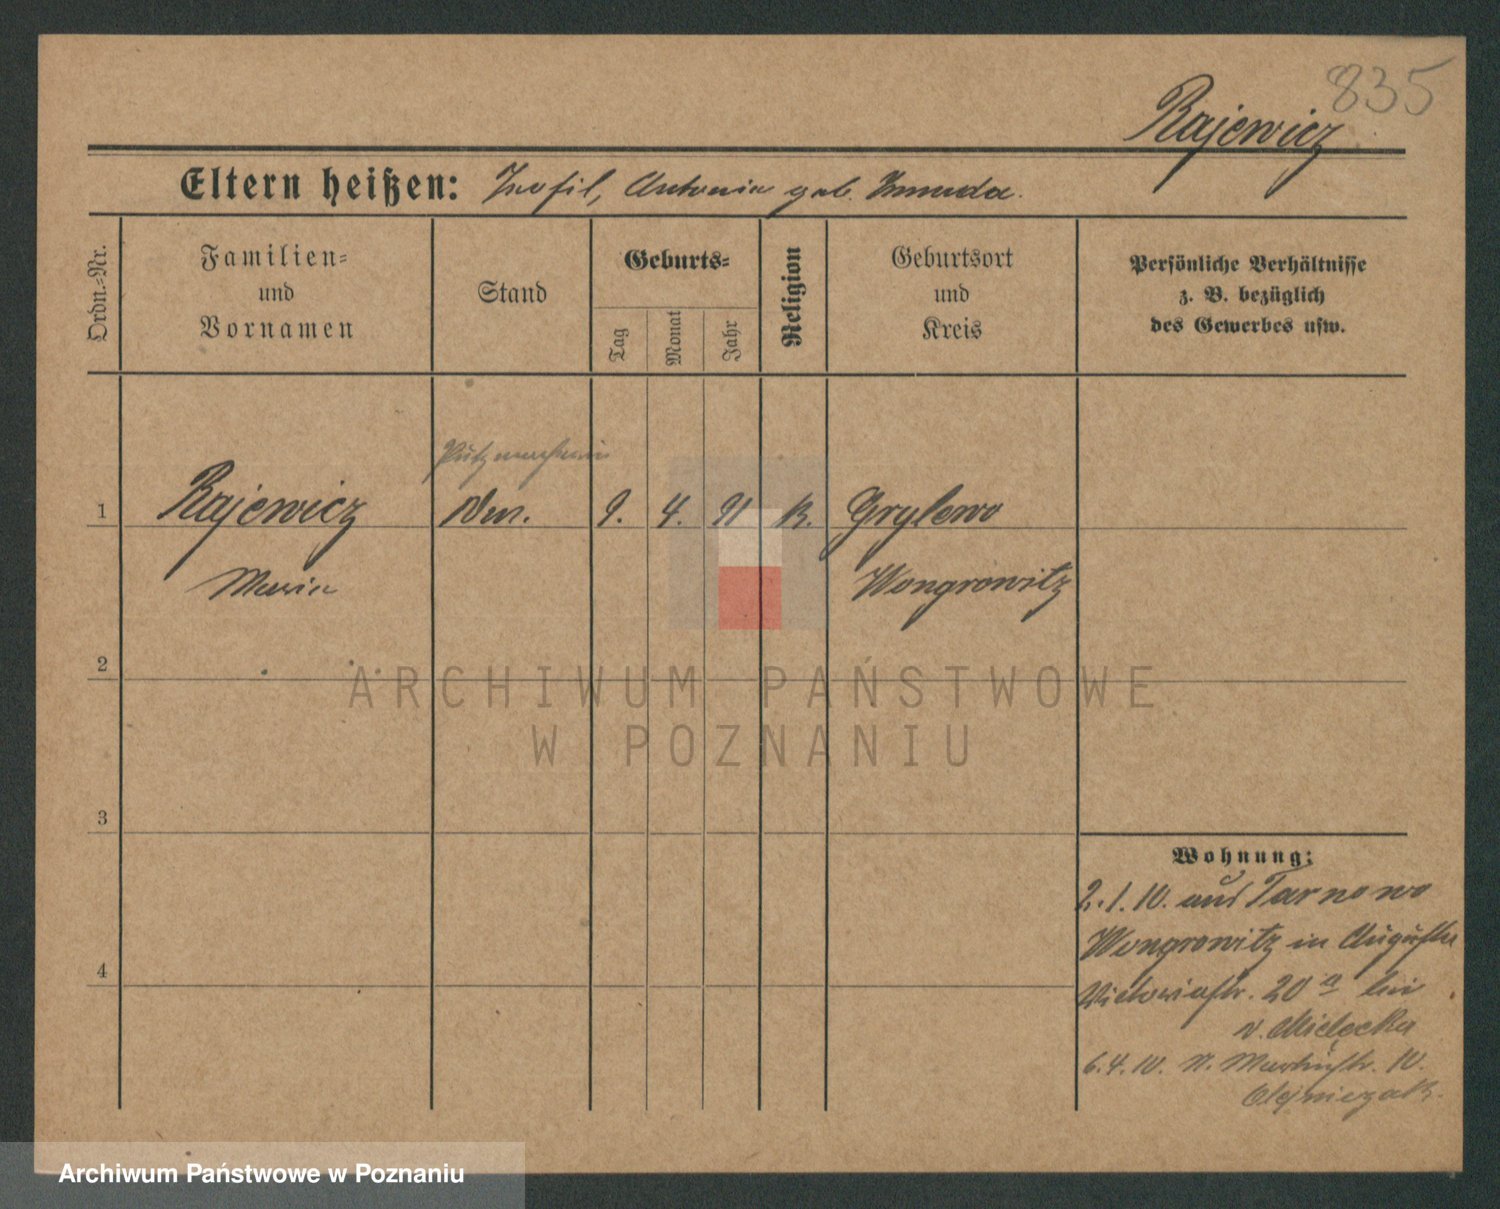 835
Rajewicz
Eltern heißen: Teofil, Antonia geb. Zmuda.
Ordn.-Nr.
Familien-
und
Vornamen
Stand
Geburts-
Tag
Monat
Jahr
Religion
Geburtsort
und
Kreis
Persönliche Verhältnisse
z. B. bezüglich
des Gewerbes usw.
Putzmacherin
1 Rajewicz 9. 4. 91 K. Grylewo
Maria Wongrowitz
2
ARCHIWUM PAŃSTWOWE
W POZNANIU
3
Wohnung:
2.1.10. aus Tarnowo
Wongrowitz in Auguste
Victoriastr. 20 a bei
v. Mielecka
6.4.10. n. Martinstr. 10.
Olejniczak.
4
Archiwum Państwowe w Poznaniu